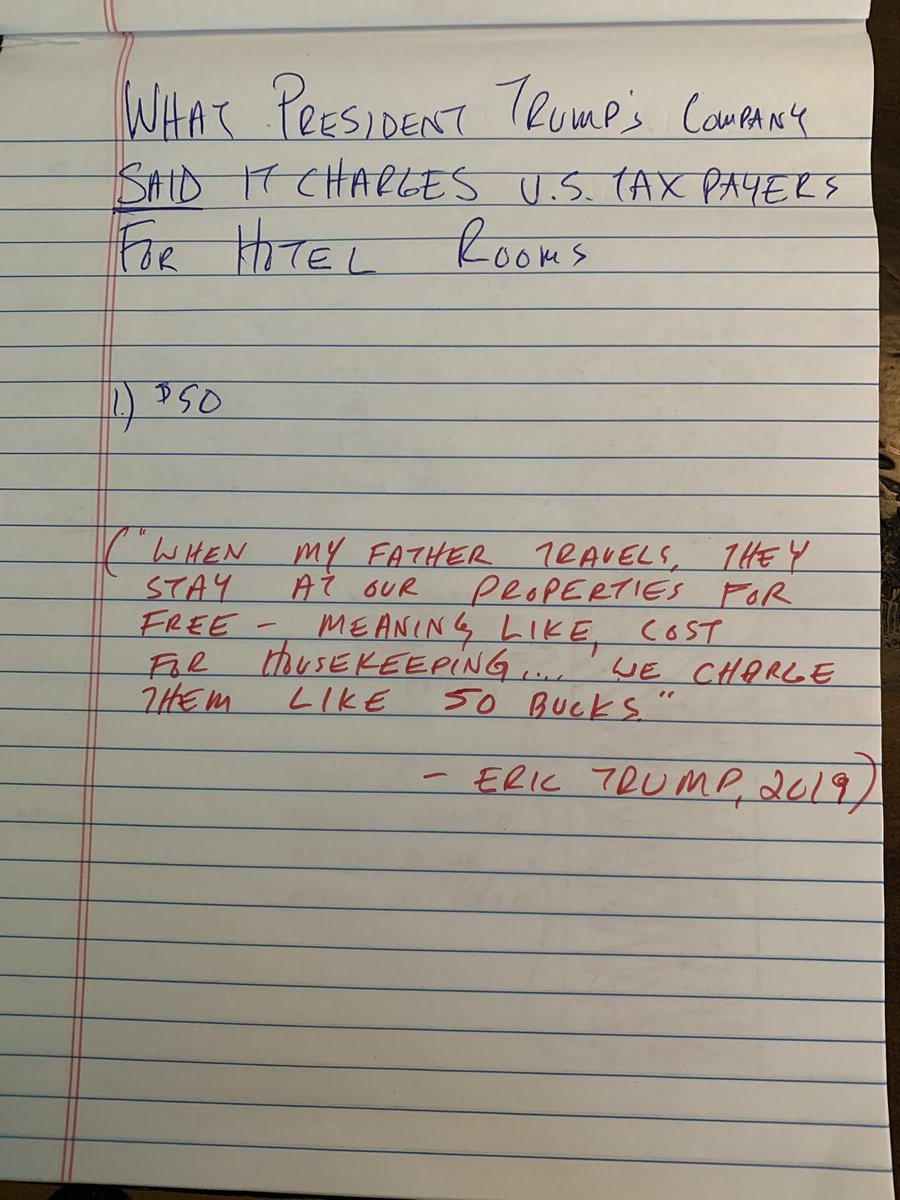 WHAT PRESIDENT TRUMP'S COMPANY
SAID IT CHARGES U.S. TAXPAYERS
FOR HOTEL ROOMS
1.) $50
("WHEN MY FATHER TRAVELS, THEY
STAY AT OUR PROPERTIES FOR
FREE – MEANING, LIKE, COST
FOR HOUSEKEEPING.... WE CHARGE
THEM LIKE 50 BUCKS."
– ERIC TRUMP, 2019)